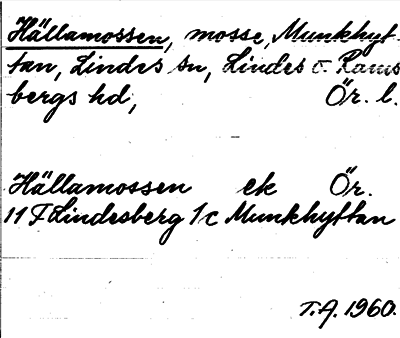 Hällamossen, mosse, Munkhyt-
tan, Lindes sn, Lindes o. Rams
bergs hd, Ör. l.
Hällamossen ek Ör.
11 F Lindesberg 1c Munkhyttan
T.A. 1960.